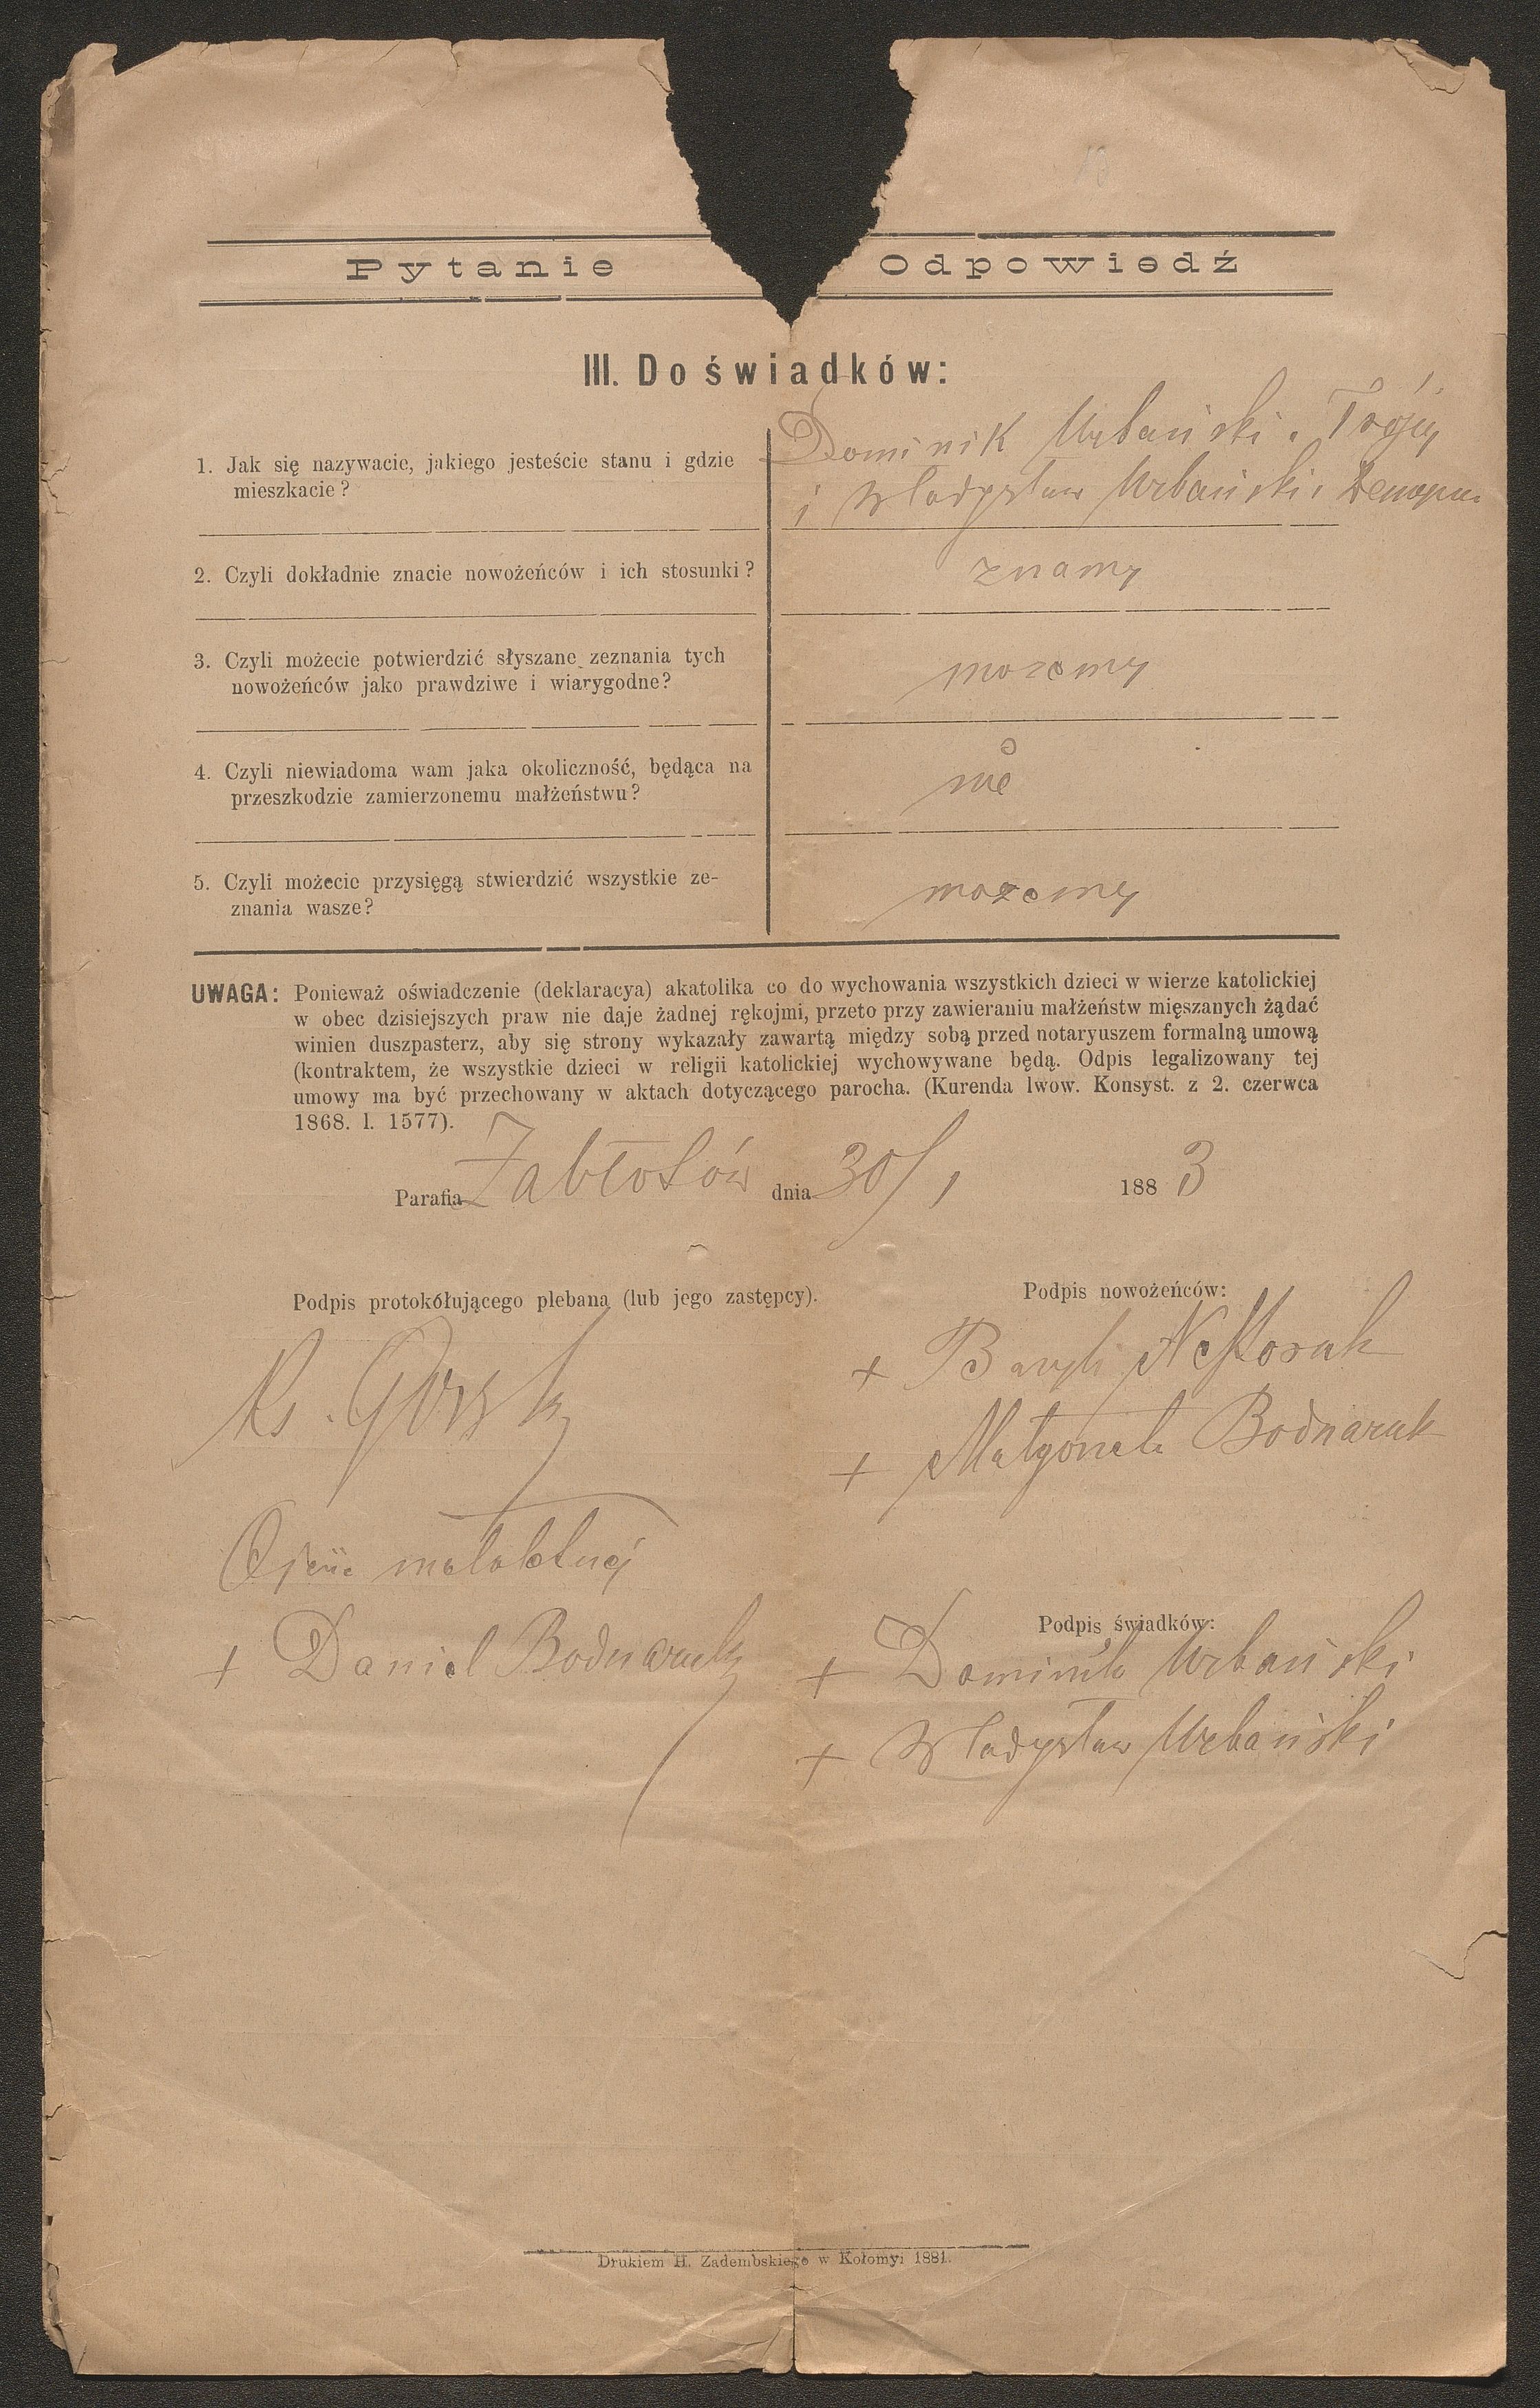 Pytanie Odpowiedź
III. Do świadków:
1. Jak się nazywacie, jakiego jesteście stanu i gdzie
mieszkacie?
Dominik Urbański. Trójcy
i Władysław Urbański.
2. Czyli dokładnie znacie nowożeńców i ich stosunki?
znamy
3. Czyli możecie potwierdzić słyszane zeznania tych
nowożeńców jako prawdziwe i wiarygodne?
mozemy
4. Czyli niewiadoma wam jaka okoliczność, będąca na
przeszkodzie zamierzonemu małżeństwu?
nie
5. Czyli możecie przysięgą stwierdzić wszystkie ze-
znania wasze?
mozemy
UWAGA: Ponieważ oświadczenie (deklaracya) akatolika co do wychowania wszystkich dzieci w wierze katolickiej
w obec dzisiejszych praw nie daje żadnej rękojmi, przeto przy zawieraniu małżeństw mięszanych żądać
winien duszpasterz, aby się strony wykazały zawartą między sobą przed notaryuszem formalną umową
(kontraktem, że wszystkie dzieci w religii katolickiej wychowywane będą. Odpis legalizowany tej
umowy ma być przechowany w aktach dotyczącego parocha. (Kurenda lwow. Konsyst. z 2. czerwca
1868. l. 1577).
Parafia Zabłotów dnia 30/1 1883
Podpis protokółującego plebana (lub jego zastępcy).
Podpis nowożeńców:
Ks.
+ Bazyli Nestoruk
+ Małgorzata Bodnaruk
małoletniej
+ Daniel Bodnaruk
Podpis świadków:
+ Dominik Urbański
+ Władysław Urbański
Drukiem H. Zadembskiego w Kołomyi 1881.